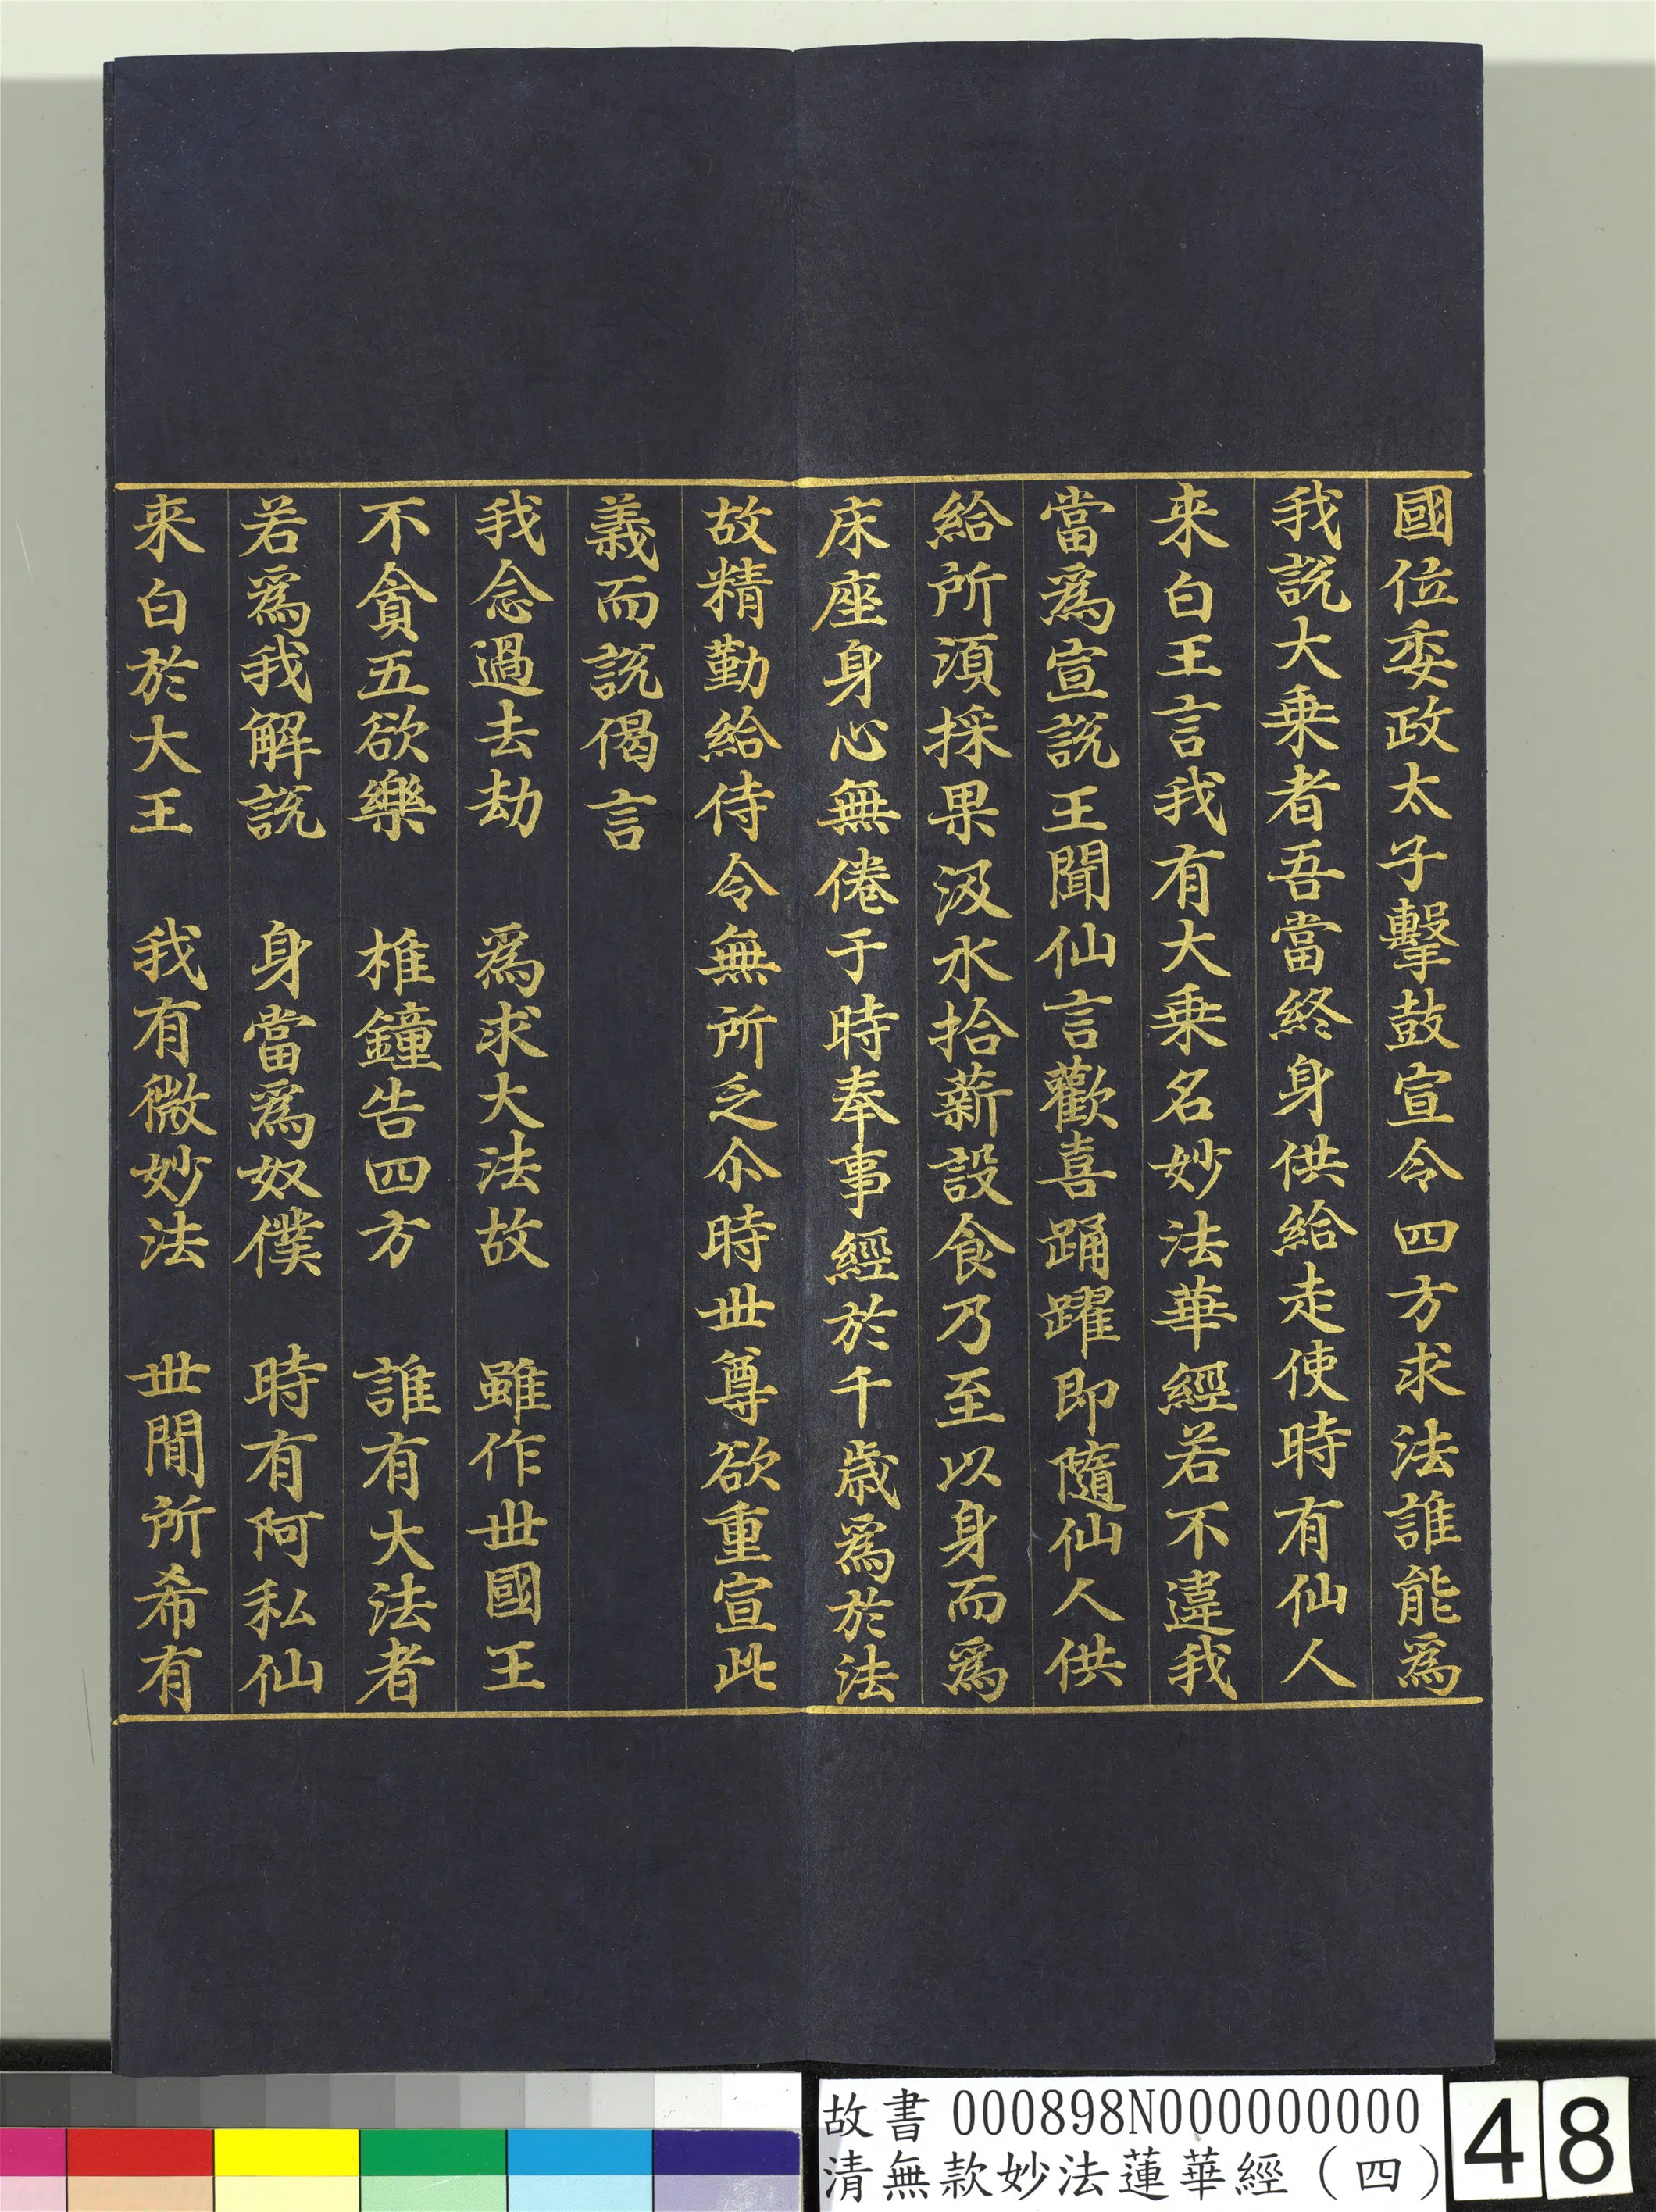 國位委政太子擊鼓宣令四方求法誰能爲
我説大乗者吾當終身供給走使時有仙人
来白王言我有大乗名妙法華經若不違我
當爲宣説王聞仙言歡喜踊躍即隨仙人供
給所湏採果汲水拾薪設食乃至以身而爲
床座身心無倦于時奉事經於千歳爲於法
故精勤給侍令無所乏尒時丗尊欲重宣此
義而説偈言
我念過去劫　爲求大法故　雖作丗國王
不貪五欲樂　椎鐘告四方　誰有大法者
若爲我解説　身當爲奴僕　時有阿私仙
来白於大王　我有微妙法　丗閒所希有
故書 000898N000000000
清無款妙法蓮華經（四）
48